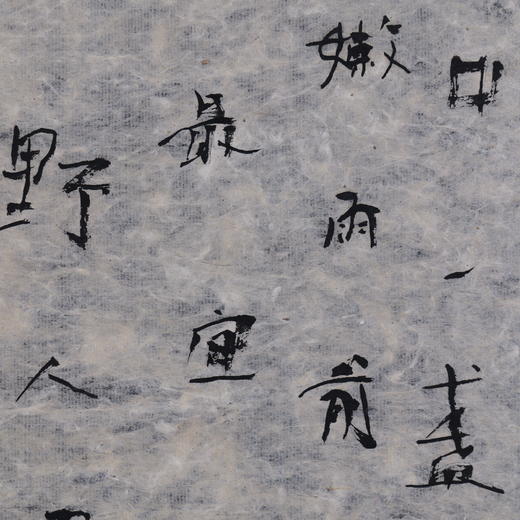 一盡
嫩雨前
最宜
野人